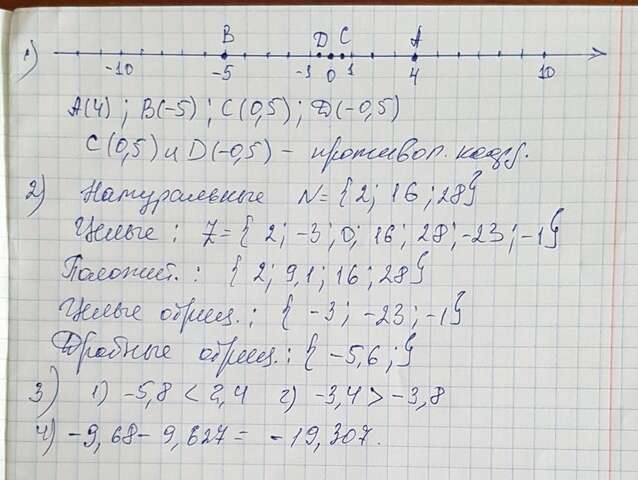 1) B D C A
-10 -5 -1 0 1 4 10
A(4); B(-5); C(0,5); D(-0,5)
C(0,5) и D(-0,5) - противоп. коорд.
2) Натуральные N = {2; 16; 28}
Целые: Z = {2; -3; 0; 16; 28; -23; -1}
Положит.: {2; 9,1; 16; 28}
Целые отриц.: {-3; -23; -1}
Дробные отриц.: {-5,6;}
3) 1) -5,8 < 2,4 2) -3,4 > -3,8
4) -9,68 - 9,627 = -19,307.